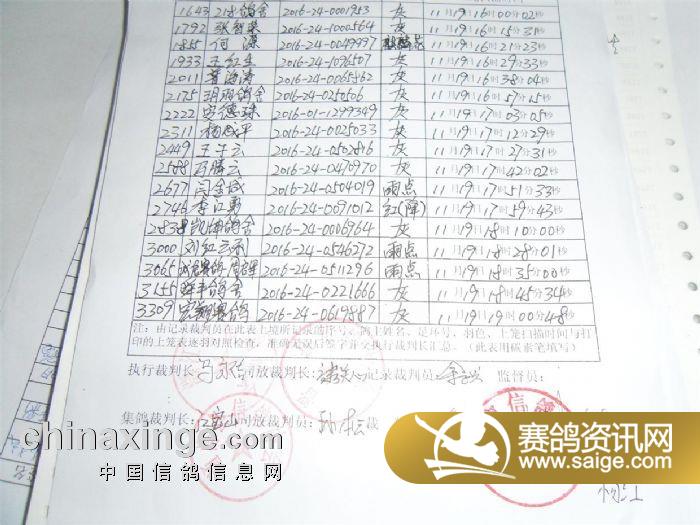 1643 21号鸽舍 2016-24-0001953 灰 11月19日16时00分02秒
1792 2016-24-1000564 灰 11月19日16时15分31秒
1855 何 2016-24-0049997 11月19日16时21分23秒
1933 王红生 2016-24-1096507 灰 11月19日16时29分33秒
2011 海涛 2016-24-0065862 灰 11月19日16时38分04秒
2175 鸽舍 2016-24-0250506 灰 11月19日16时57分15秒
2222 安德珠 2016-01-1299349 灰 11月19日17时03分05秒
2311 杨成平 2016-24-0025033 灰 11月19日17时12分29秒
2449 王子云 2016-24-0502816 灰 11月19日17时27分31秒
2588 腾云 2016-24-0470970 灰 11月19日17时42分02秒
2677 闫金成 2016-24-0504019 雨点 11月19日17时51分33秒
2746 李江勇 2016-24-0091012 红(降) 11月19日17时59分43秒
2838 凯坤鸽舍 2016-24-0006964 灰 11月19日18时10分00秒
3000 刘红 2016-24-0546272 雨点 11月19日18时28分01秒
3065 2016-24-0511296 雨点 11月19日18时35分00秒
3155 鸽舍 2016-24-0221666 灰 11月19日18时45分34秒
3309 赛鸽 2016-24-0619887 灰 11月19日19时00分48秒
注：由记录裁判员在此表上填所记录的序号、鸽主姓名、足环号、羽色、上笼扫描时间与打
印的上笼表逐羽对照检查，准确无误后签字并交执行裁判长汇总。（此表用碳素笔填写）
执行裁判长： 司放裁判长： 记录裁判员： 监督员：
集鸽裁判长： 司放裁判员： 裁
chinaxinge.com
中国信鸽信息网
赛鸽资讯网
www.saige.com